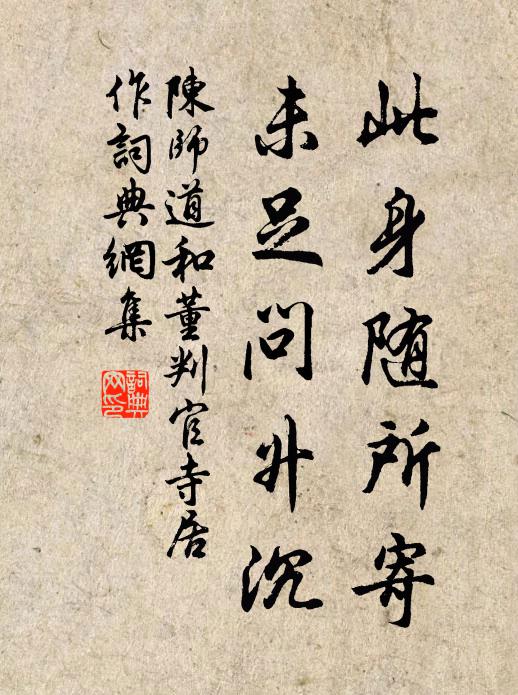 此身随所寄
未足问升沉
陳師道和董判官寺居
作詞典網集
詞典
网印